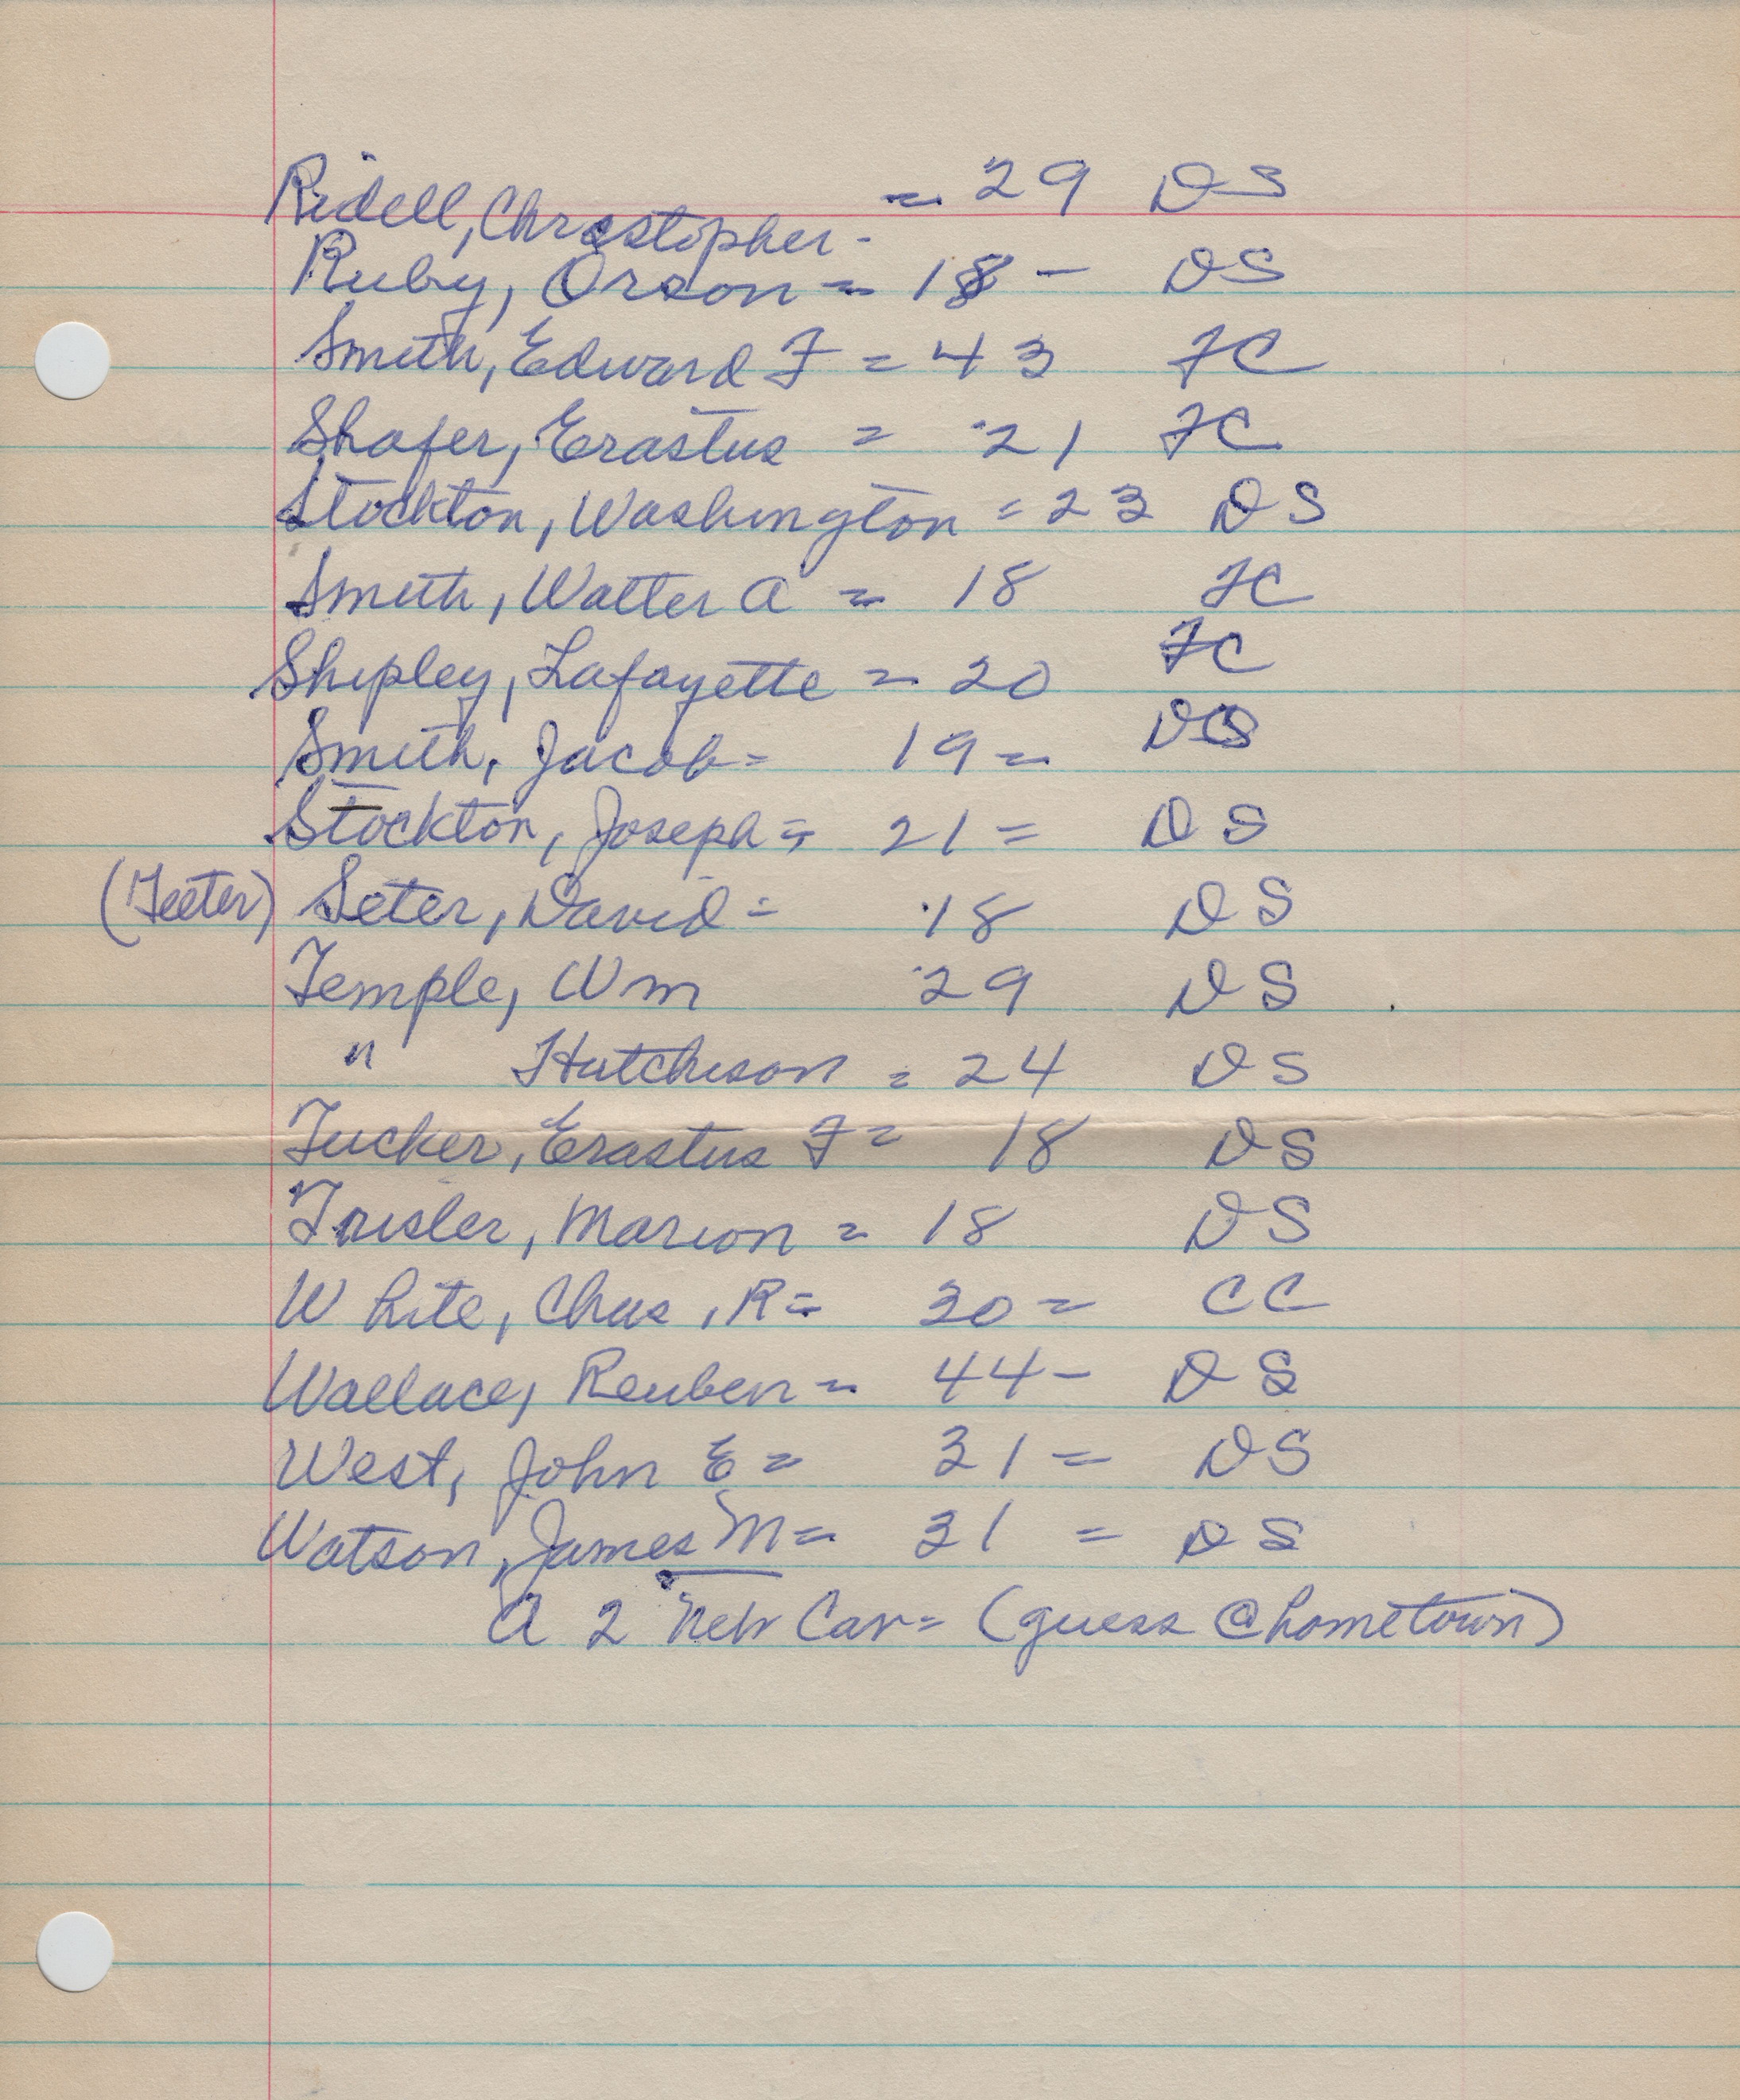 Ridell, Christopher - = 29 DS
Ruby, Orson = 18 - DS
Smith, Edward F = 43 FC
Shafer, Erastus = 21 FC
Stockton, Washington = 23 DS
Smith, Walter A = 18 FC
Shipley, Lafayette = 20 FC
Smith, Jacob = 19 = DS
Stockton, Joseph = 21 = DS
(Teeter) Seter, David = 18 DS
Temple, Wm 29 DS
" Hutchison = 24 DS
Tucker, Erastus F = 18 DS
Trisler, Marion = 18 DS
White, Chas, R = 30 = CC
Wallace, Reuben = 44 - DS
West, John E = 31 = DS
Watson, James M = 31 = DS
A 2 New Car = (guess @ hometown)